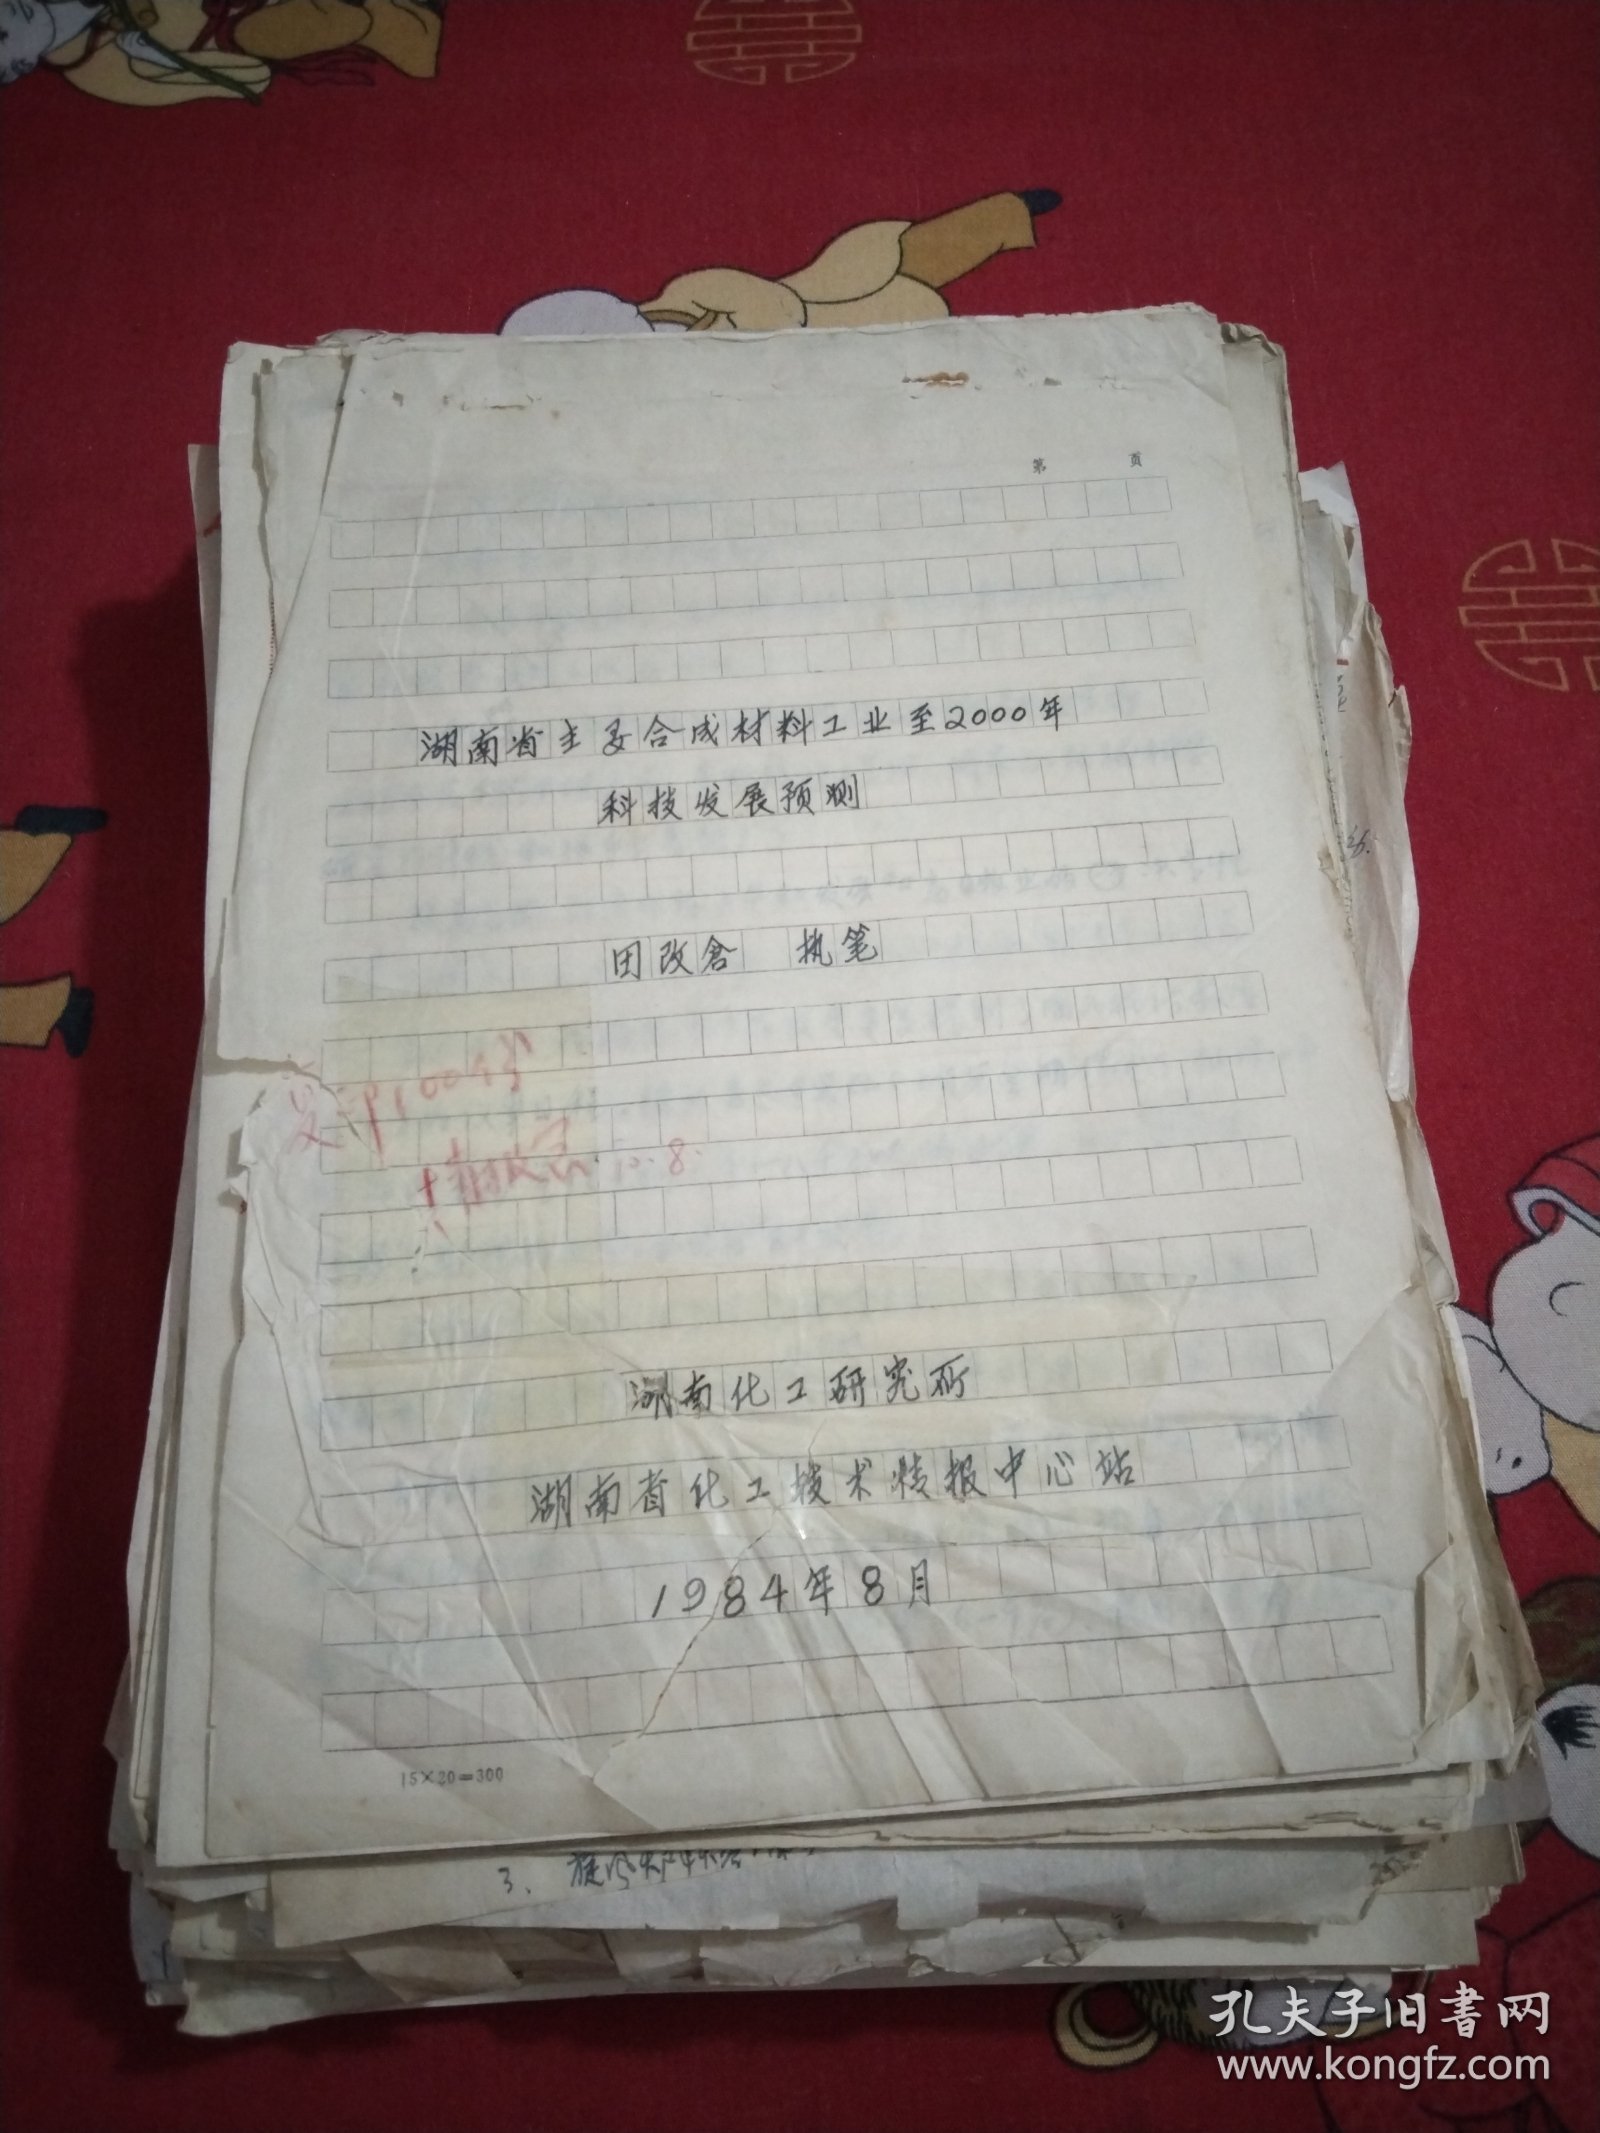 第 页
湖南省主要合成材料工业至2000年
科技发展预测
田改仓 执笔
复印100份
情报室 10.8.
湖南化工研究所
湖南省化工技术情报中心站
1984年8月
15×20=300
3、旋风炉
孔夫子旧书网
www.kongfz.com